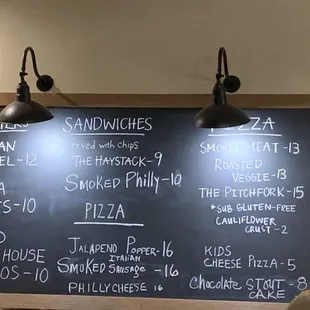 SANDWICHES
served with chips
THE HAYSTACK-9
Smoked Philly-10
PIZZA
Jalapeno Popper-16
Italian
Smoked Sausage -16
PHILLY CHEESE 16
PIZZA
SMOKED MEAT-13
ROASTED
VEGGIE-13
THE PITCHFORK-15
*SUB GLUTEN-FREE
CAULIFLOWER
CRUST-2
KIDS
CHEESE PIZZA-5
Chocolate STOUT-8
CAKE
-12
-10
HOUSE
OS-10